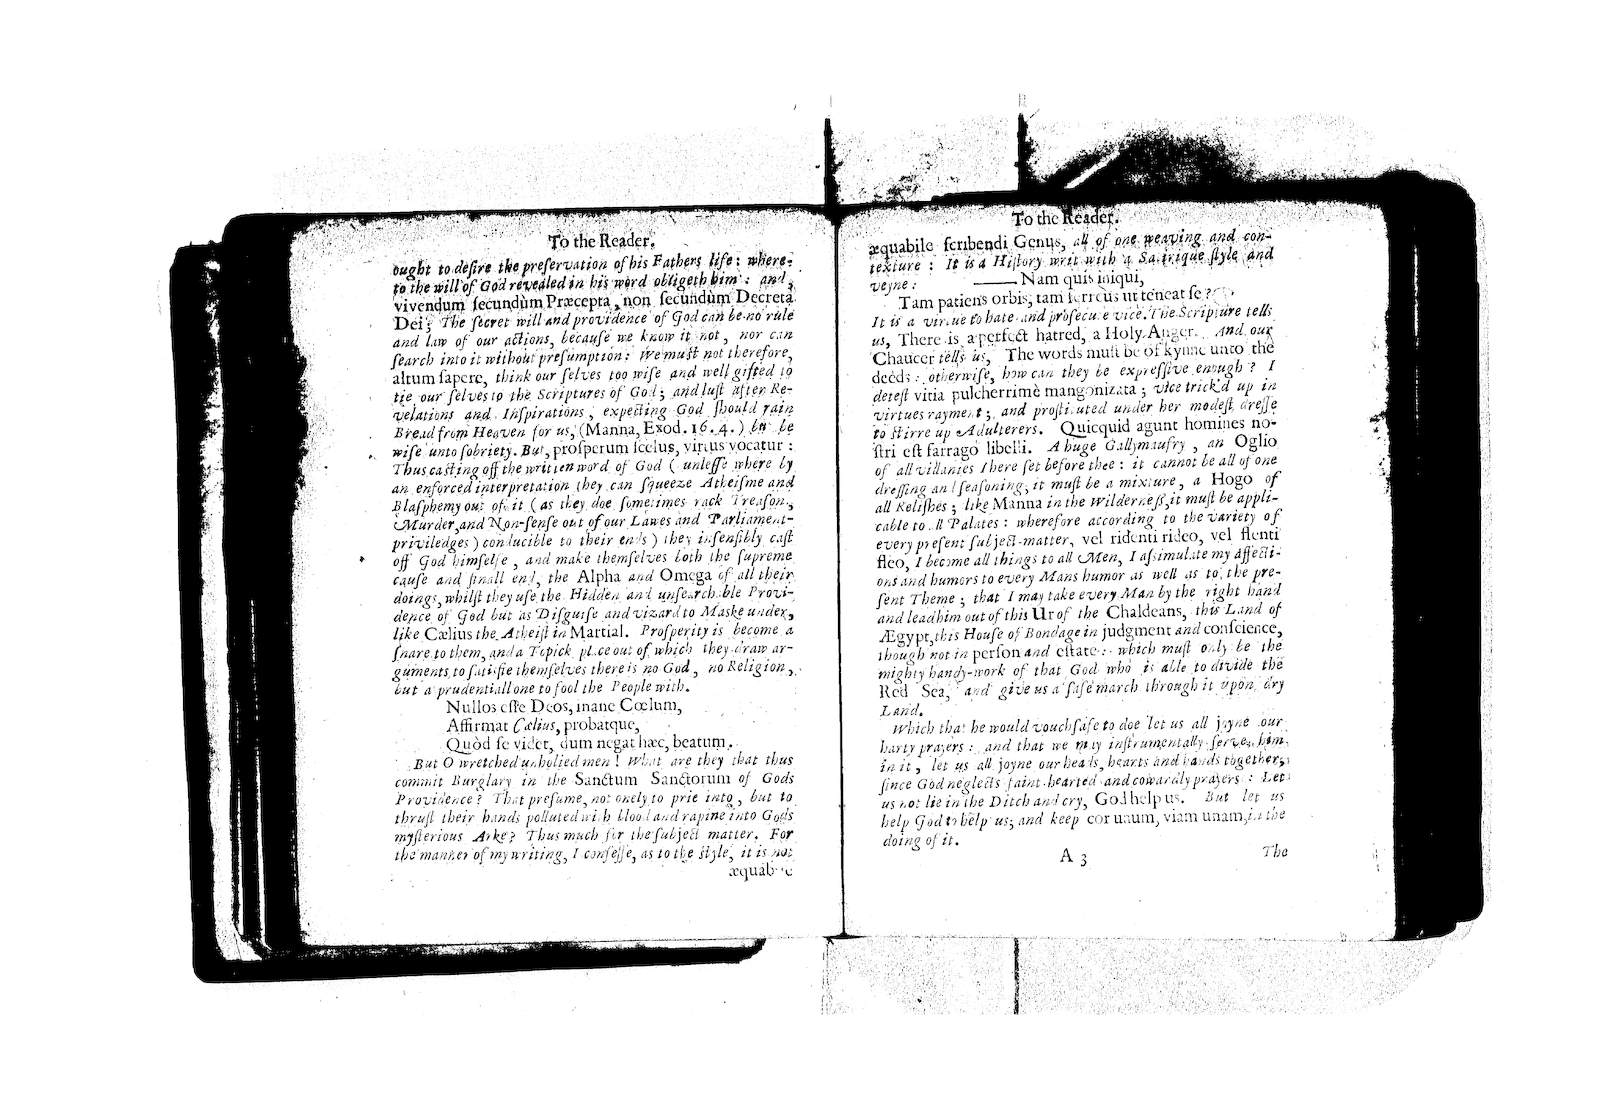 To the Reader.
ought to deſire the preſervation of his Fathers life: where-
to the will of God revealed in his word obligeth him: and,
vivendum ſecundùm Præcepta, non ſecundùm Decreta
Dei; The ſecret will and providence of God can be no rule
and law of our actions, becauſe we know it not, nor can
ſearch into it without preſumption: We muſt not therefore,
altum ſapere, think our ſelves too wiſe and well gifted to
tie our ſelves to the Scriptures of God; and luſt after Re-
velations and Inſpirations, expecting God ſhould rain
Bread from Heaven for us, (Manna, Exod. 16. 4.) but be
wiſe unto ſobriety. But, proſperum ſcelus, virtus vocatur:
Thus caſting off the written word of God (unleſſe where by
an enforced interpretation they can ſqueeze Atheiſme and
Blaſphemy out of it (as they doe ſometimes rack Treaſon,
Murder, and Non-ſenſe out of our Lawes and Parliament-
priviledges) conducible to their ends) they inſenſibly caſt
off God himſelfe, and make themſelves both the ſupreme
cauſe and finall end, the Alpha and Omega of all their
doings, whilſt they uſe the Hidden and unſearchable Provi-
dence of God but as Diſguiſe and vizard to Maske under,
like Cælius the Atheiſt in Martial. Proſperity is become a
ſnare to them, and a Topick place out of which they draw ar-
guments to ſatisfie themſelves there is no God, no Religion,
but a prudentiall one to fool the People with.
Nullos eſſe Deos, inane Cœlum,
Affirmat Cælius, probatque,
Quòd ſe videt, dum negat hæc, beatum.
But O wretched unholied men! What are they that thus
commit Burglary in the Sanctum Sanctorum of Gods
Providence? That preſume, not onely to prie into, but to
thruſt their hands polluted with blood and rapine into Gods
myſterious Arke? Thus much for the ſubject matter. For
the manner of my writing, I confeſſe, as to the ſtyle, it is not
æquabile
To the Reader.
æquabile ſcribendi Genus, all of one weaving and con-
texture: It is a Hiſtory writ with a Satirique ſtyle and
veyne:
—— Nam quis iniqui,
Tam patiens orbis, tam ferreus ut teneat ſe?
It is a virtue to hate and proſecute vice. The Scripture tells
us, There is a perfect hatred, a Holy Anger. And our
Chaucer tells us, The words muſt be of kynne unto the
deeds: otherwiſe, how can they be expreſſive enough? I
deteſt vitia pulcherrimè mangonizata; vice trick'd up in
virtues rayment; and proſtituted under her modeſt dreſſe
to ſtirre up Adulterers. Quicquid agunt homines no-
ſtri eſt farrago libelli. A huge Gallymaufry, an Oglio
of all villanies I here ſet before thee: it cannot be all of one
dreſſing and ſeaſoning, it muſt be a mixture, a Hogo of
all Reliſhes; like Manna in the Wilderneſs, it muſt be appli-
cable to all Palates: wherefore according to the variety of
every preſent ſubject-matter, vel ridenti rideo, vel flenti
fleo, I become all things to all Men, I aſſimulate my Affecti-
ons and humors to every Mans humor as well as to the pre-
ſent Theme; that I may take every Man by the right hand
and lead him out of this Ur of the Chaldeans, this Land of
Ægypt, this Houſe of Bondage in judgment and conſcience,
though not in perſon and eſtate: which muſt only be the
mighty handy-work of that God who is able to divide the
Red Sea, and give us a ſafe march through it upon dry
Land.
Which that he would vouchſafe to doe let us all joyne our
harty prayers: and that we may inſtrumentally ſerve him
in it, let us all joyne our heads, hearts and hands together;
ſince God neglects faint-hearted and cowardly prayers: Let
us not lie in the Ditch and cry, God help us. But let us
help God to help us; and keep cor unum, viam unam, in the
doing of it.
A 3
The